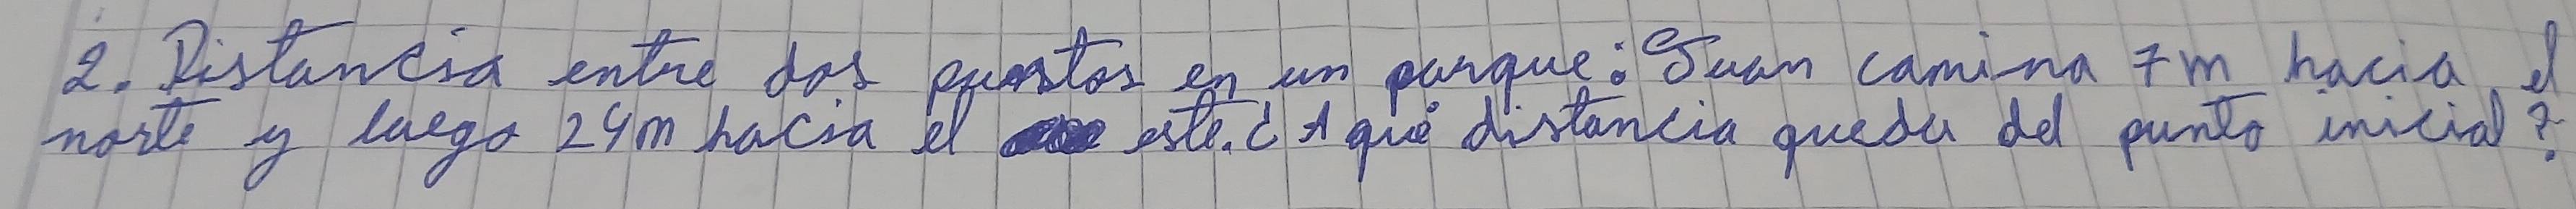 2. Distancia entre dos puntos en un parque: Juan camina 7m hacia el
norte y luego 24m hacia el este. ¿A qué distancia queda del punto inicial?